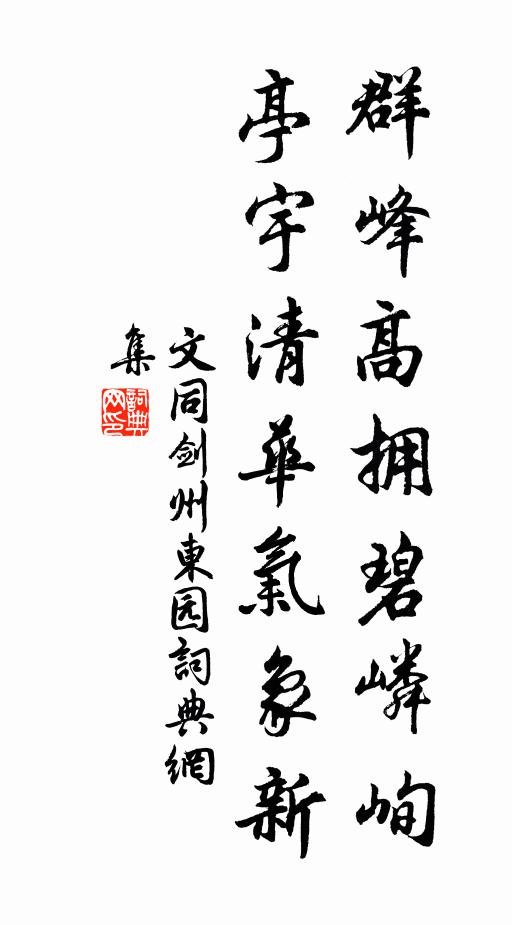 群峰高拥碧嶙峋
亭宇清華氣象新
文同剑州東园詞典網
集
詞典
网印